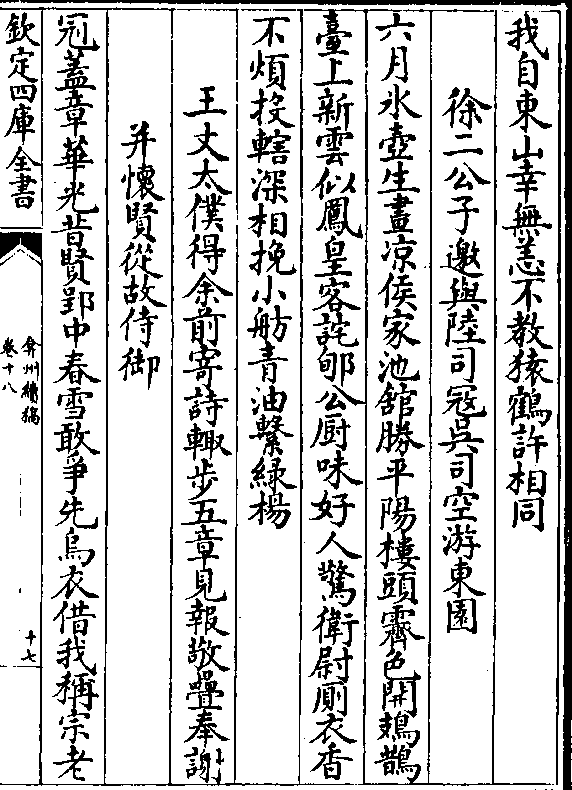 我自東山幸無恙不教猿鶴許相同
徐二公子邀與陸司寇吳司空游東園
六月氷壺生晝凉侯家池舘勝平陽樓頭霽色開鳷鵲
臺上新雲似鳳皇客詫郇公厨味好人驚衛尉厠衣香
不煩投轄深相挽小舫青油繫緑楊
王丈太僕得余前寄詩輙步五章見報敬疊奉謝
并懷賢從故侍御
冠蓋章華光昔賢郢中春雪敢爭先烏衣借我稱宗老
欽定四庫全書
弇州續稿
卷十八
十七